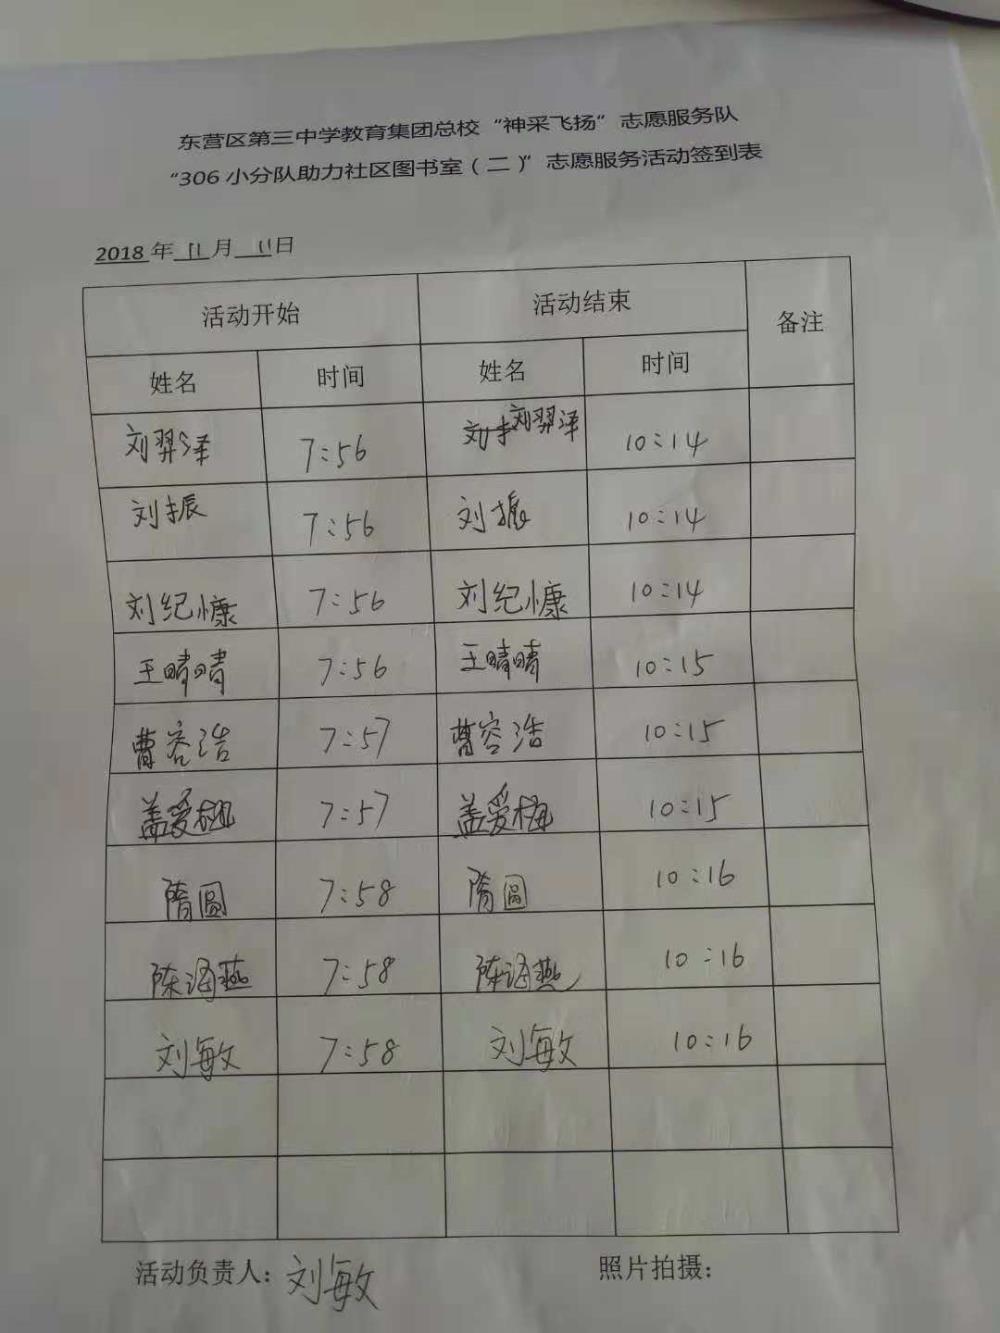 东营区第三中学教育集团总校“神采飞扬”志愿服务队
“306 小分队助力社区图书室（二）”志愿服务活动签到表
2018 年 11 月 11 日
活动开始 活动结束 备注
姓名 时间 姓名 时间
刘羿泽 7:56 刘羿泽 10:14
刘振 7:56 刘振 10:14
刘纪慷 7:56 刘纪慷 10:14
王晴晴 7:56 王晴晴 10:15
曹容浩 7:57 曹容浩 10:15
盖爱梅 7:57 盖爱梅 10:15
隋圆 7:58 隋圆 10:16
陈海燕 7:58 陈海燕 10:16
刘敏 7:58 刘敏 10:16
活动负责人：刘敏 照片拍摄：